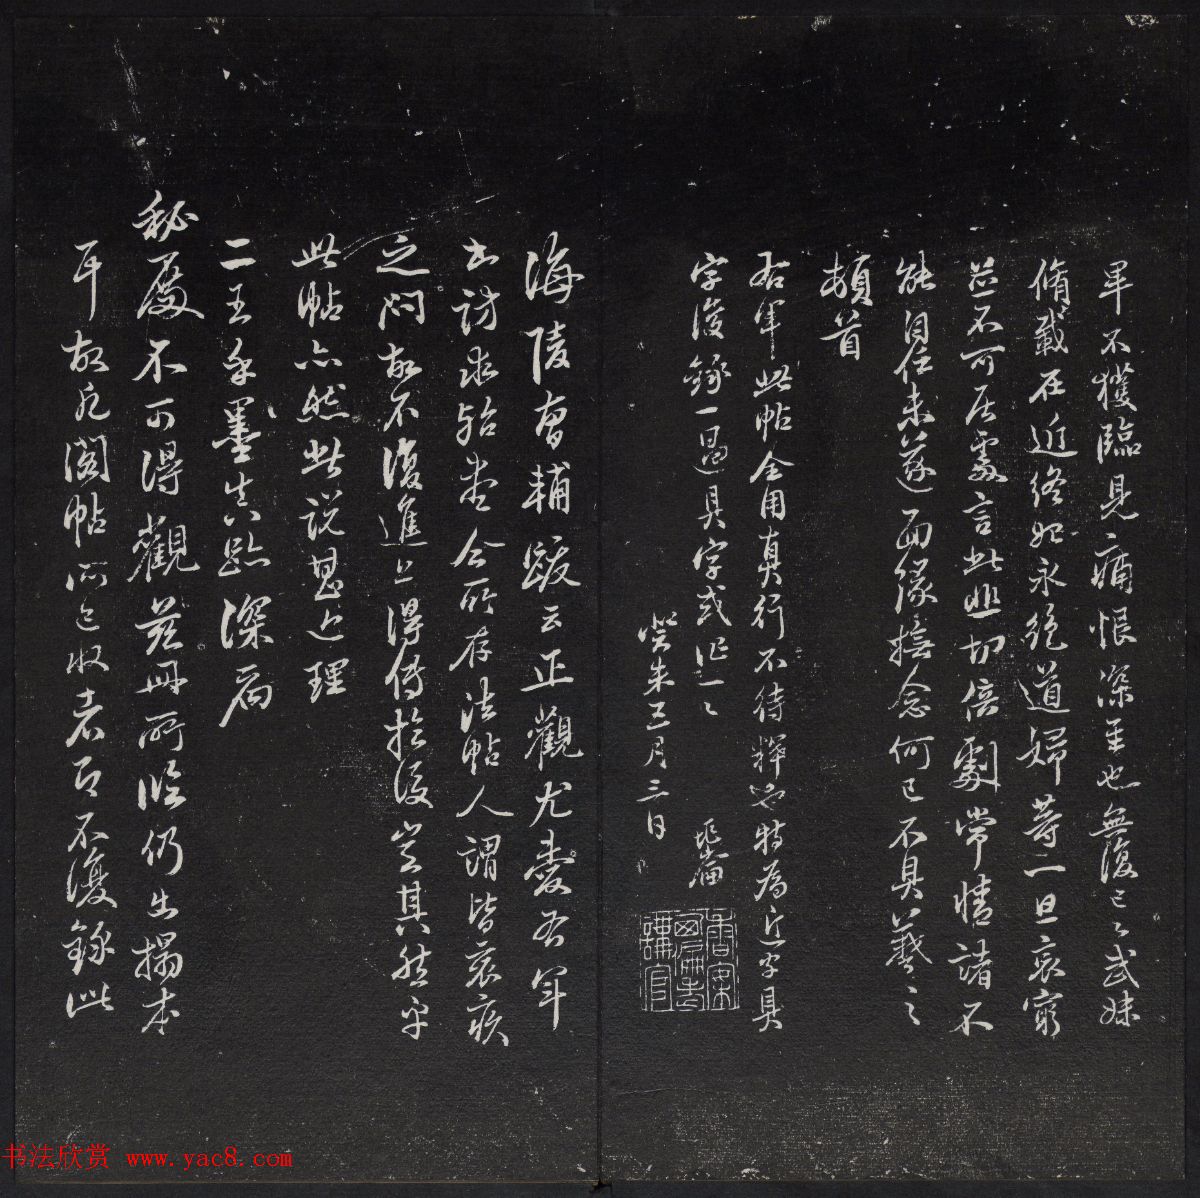 畢不獲臨見痛恨深至也無復已已武妹
脩載在近終始永絕道婦等一旦哀窮
並不可居處言此悲切倍劇常情諸不
能自任未遂面緣撫念何已不具羲之
頓首
右軍此帖全用真行不待釋也特為近字具
字後錄一過具字或作一一
癸未五月三日
海陵有輔跋云正觀尤愛右軍
書訪求殆盡今所存法帖人謂皆哀疾
之問故不復進上得傳於後豈其然乎
此帖亦然此說甚近理
二王手墨真跡深局
秘殿不可得觀茲冊所臨仍出搨本
耳故凡閣帖所已收者即不復錄此
書法欣賞 www.yac8.com